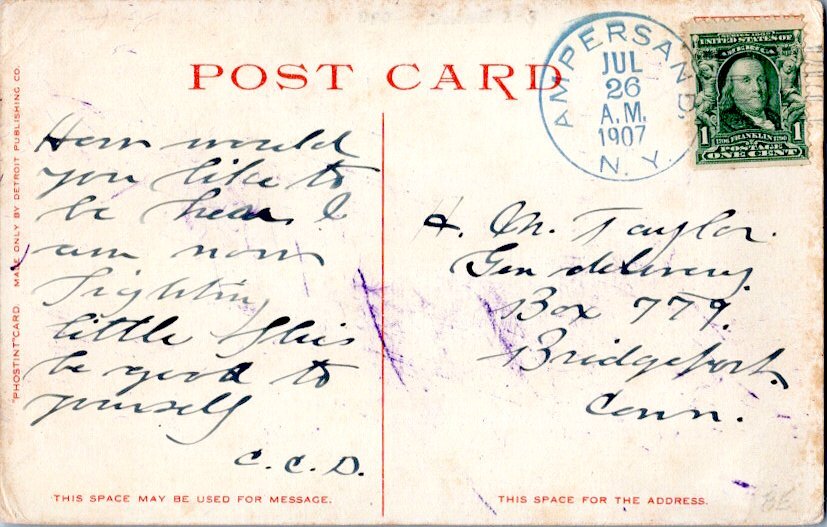 POST CARD
AMPERSAND
JUL
26
A.M.
1907
N.Y.
SERIES 1902
UNITED STATES OF
AMERICA
1 FRANKLIN 1
POSTAGE
ONE CENT
"PHOSTINT" CARD. MADE ONLY BY DETROIT PUBLISHING CO.
How would
you like to
be hear I
am now
fighting
little flies
be good to
yourself
C.C.D.
H. M. Taylor.
Gen delivery.
Box 779.
Bridgeport.
Conn.
THIS SPACE MAY BE USED FOR MESSAGE.
THIS SPACE FOR THE ADDRESS.